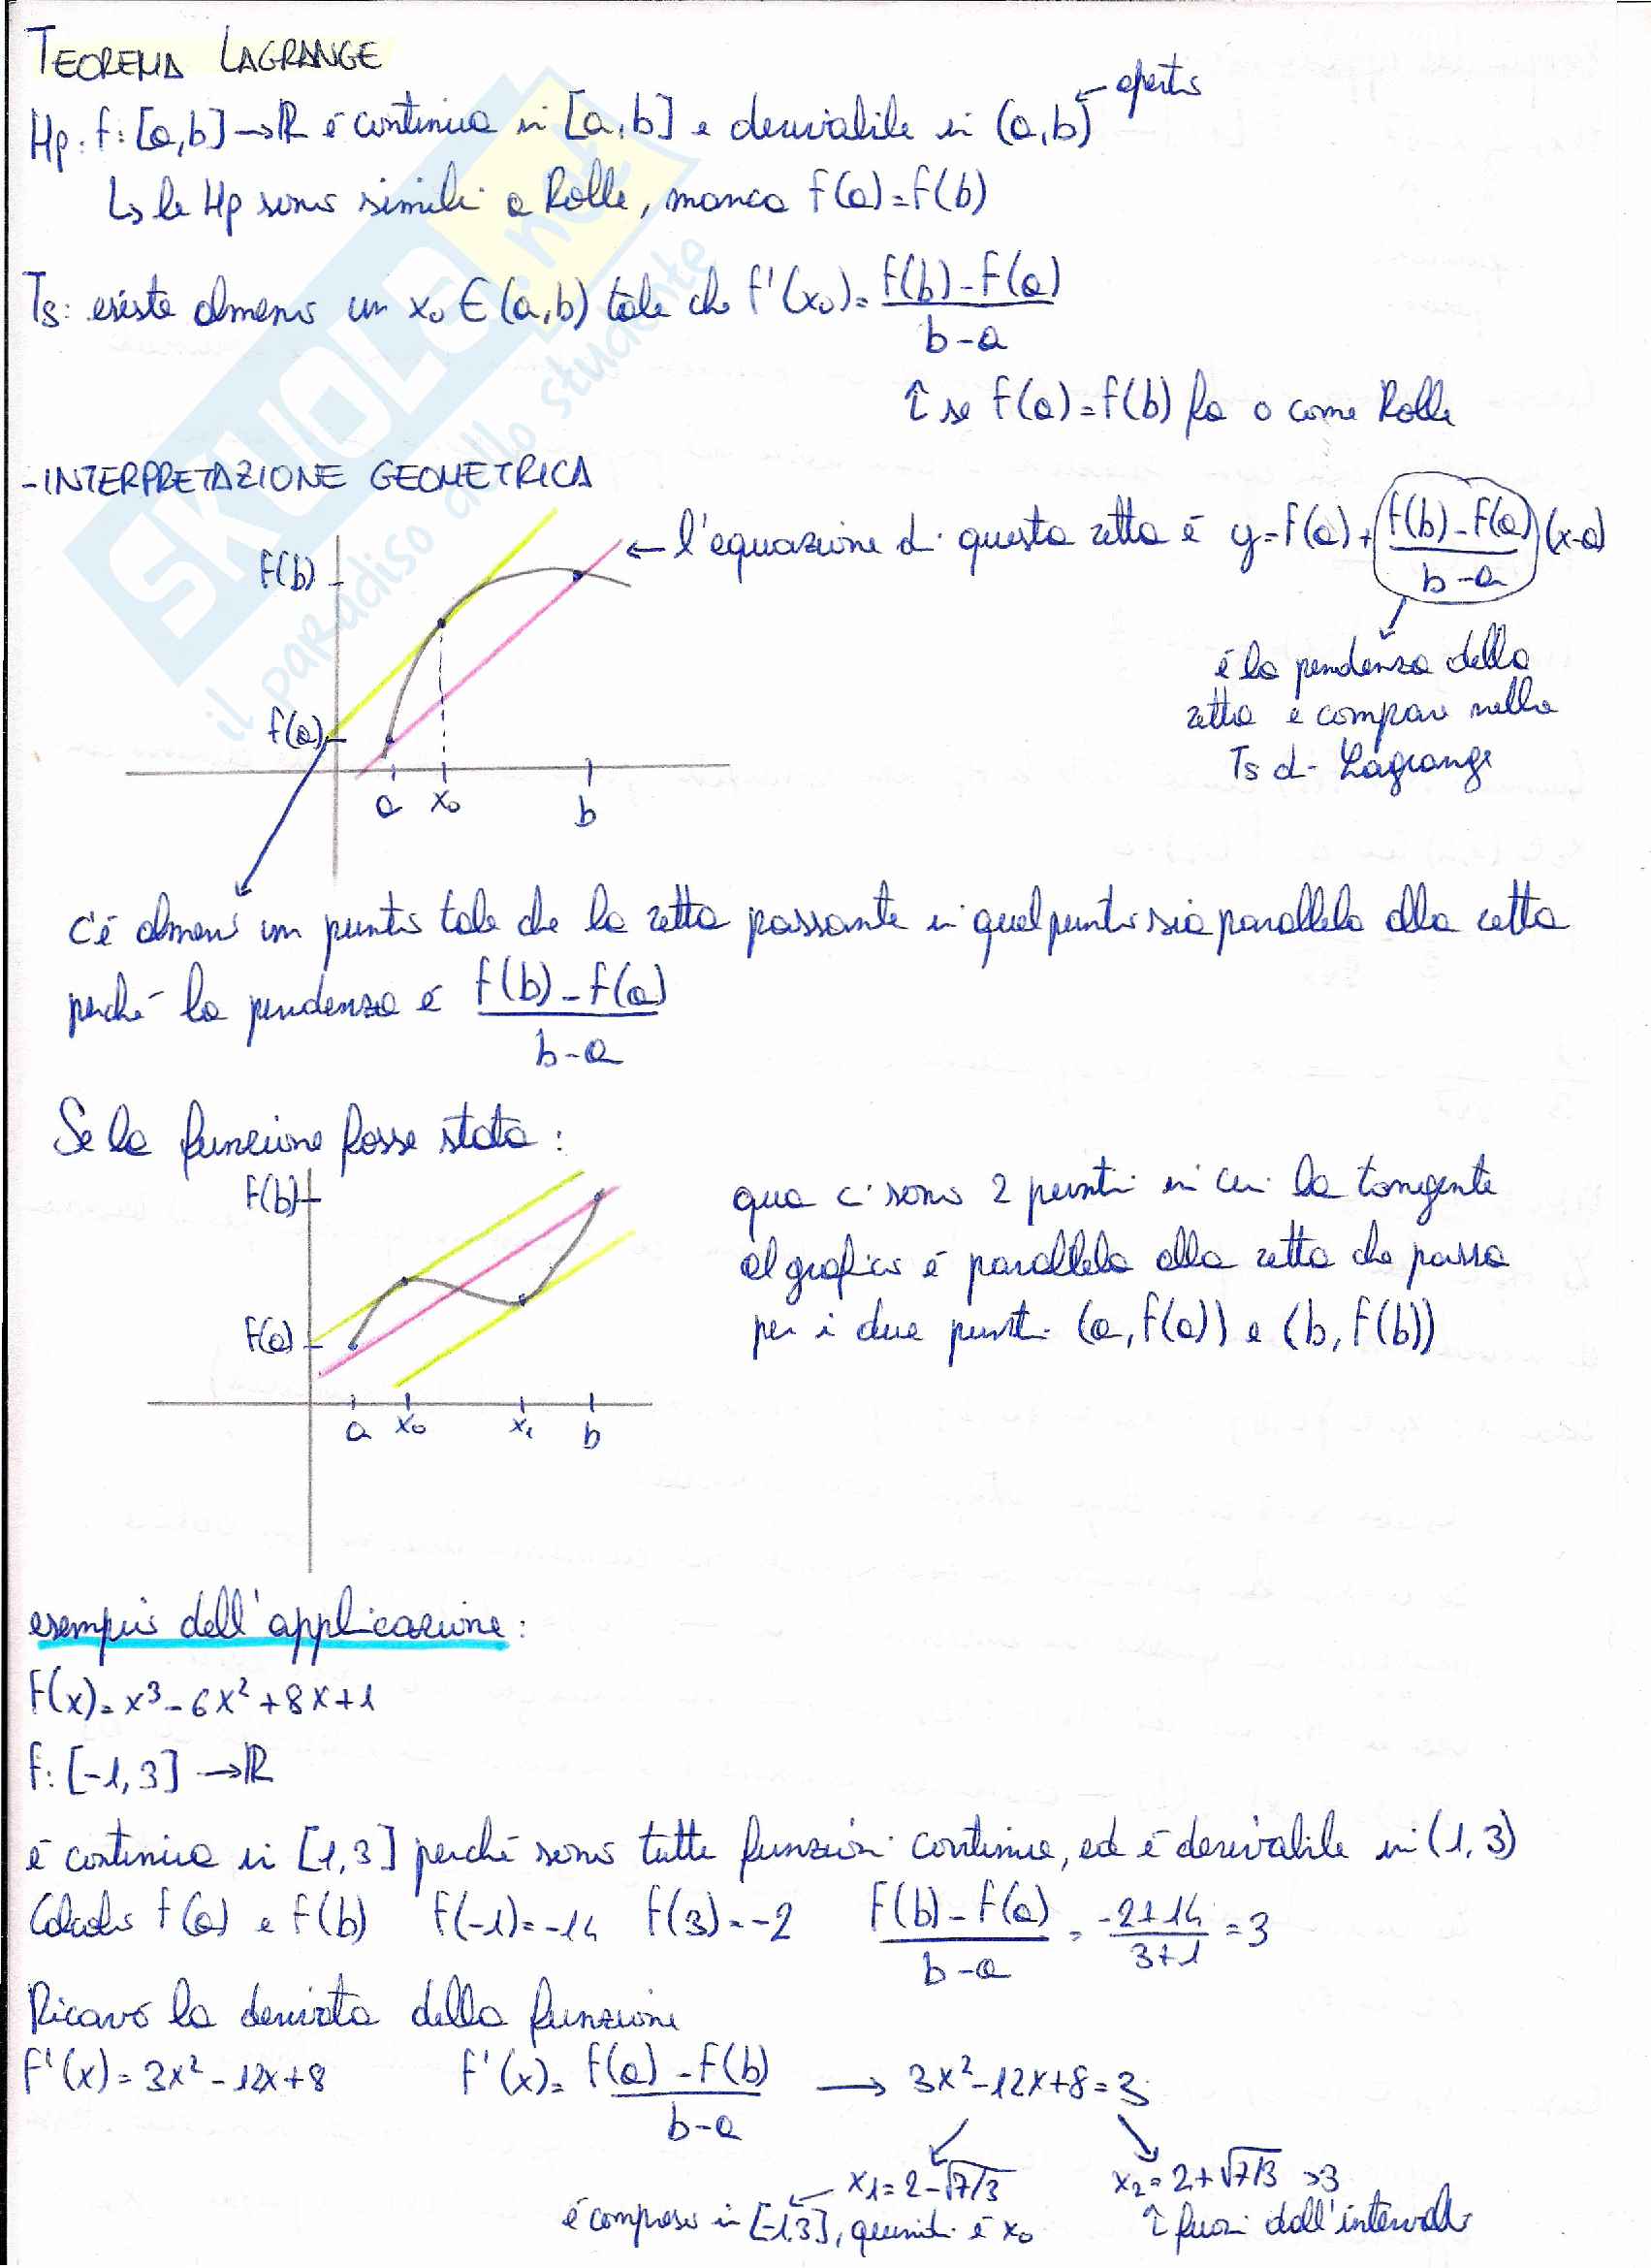 TEOREMA LAGRANGE
Hp: f: [a,b] → ℝ è continua in [a,b] e derivabile in (a,b) ← aperto
↳ le Hp sono simili a Rolle, manca f(a)=f(b)
Ts: esiste almeno un x₀ ∈ (a,b) tale che f'(x₀)= (f(b)-f(a))/(b-a)
↑ se f(a)=f(b) fa 0 come Rolle
- INTERPRETAZIONE GEOMETRICA
← l'equazione di questa retta è y=f(a)+ (f(b)-f(a))/(b-a) (x-a)
f(b)
è la pendenza della
retta e compare nella
Ts di Lagrange
f(a)
a x₀ b
c'è almeno un punto tale che la retta passante in quel punto sia parallela alla retta
perché la pendenza è (f(b)-f(a))/(b-a)
Se la funzione fosse stata:
f(b)
f(a)
a x₀ x₁ b
qua ci sono 2 punti in cui la tangente
al grafico è parallela alla retta che passa
per i due punti (a,f(a)) e (b,f(b))
esempio dell'applicazione:
f(x)=x³-6x²+8x+1
f: [-1,3] → ℝ
è continua in [1,3] perché sono tutte funzioni continue, ed è derivabile in (1,3)
Calcolo f(a) e f(b) f(-1)=-14 f(3)=-2 (f(b)-f(a))/(b-a) = (-2+14)/(3+1) =3
Ricavo la derivata della funzione
f'(x)=3x²-12x+8 f'(x)= (f(a)-f(b))/(b-a) → 3x²-12x+8=3
x₁=2-√7/3 x₂=2+√7/3 >3
è compreso in [-1,3], quindi è x₀ ↑ fuori dall'intervallo
SKUOLA.net
il paradiso dello studente